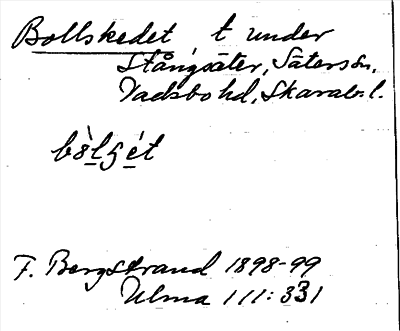 Bollskedet t under
Stångsäter, Säters sn,
Vadsbo hd, Skarab. l.
F. Bergstrand 1898-99
Ulma 111:331